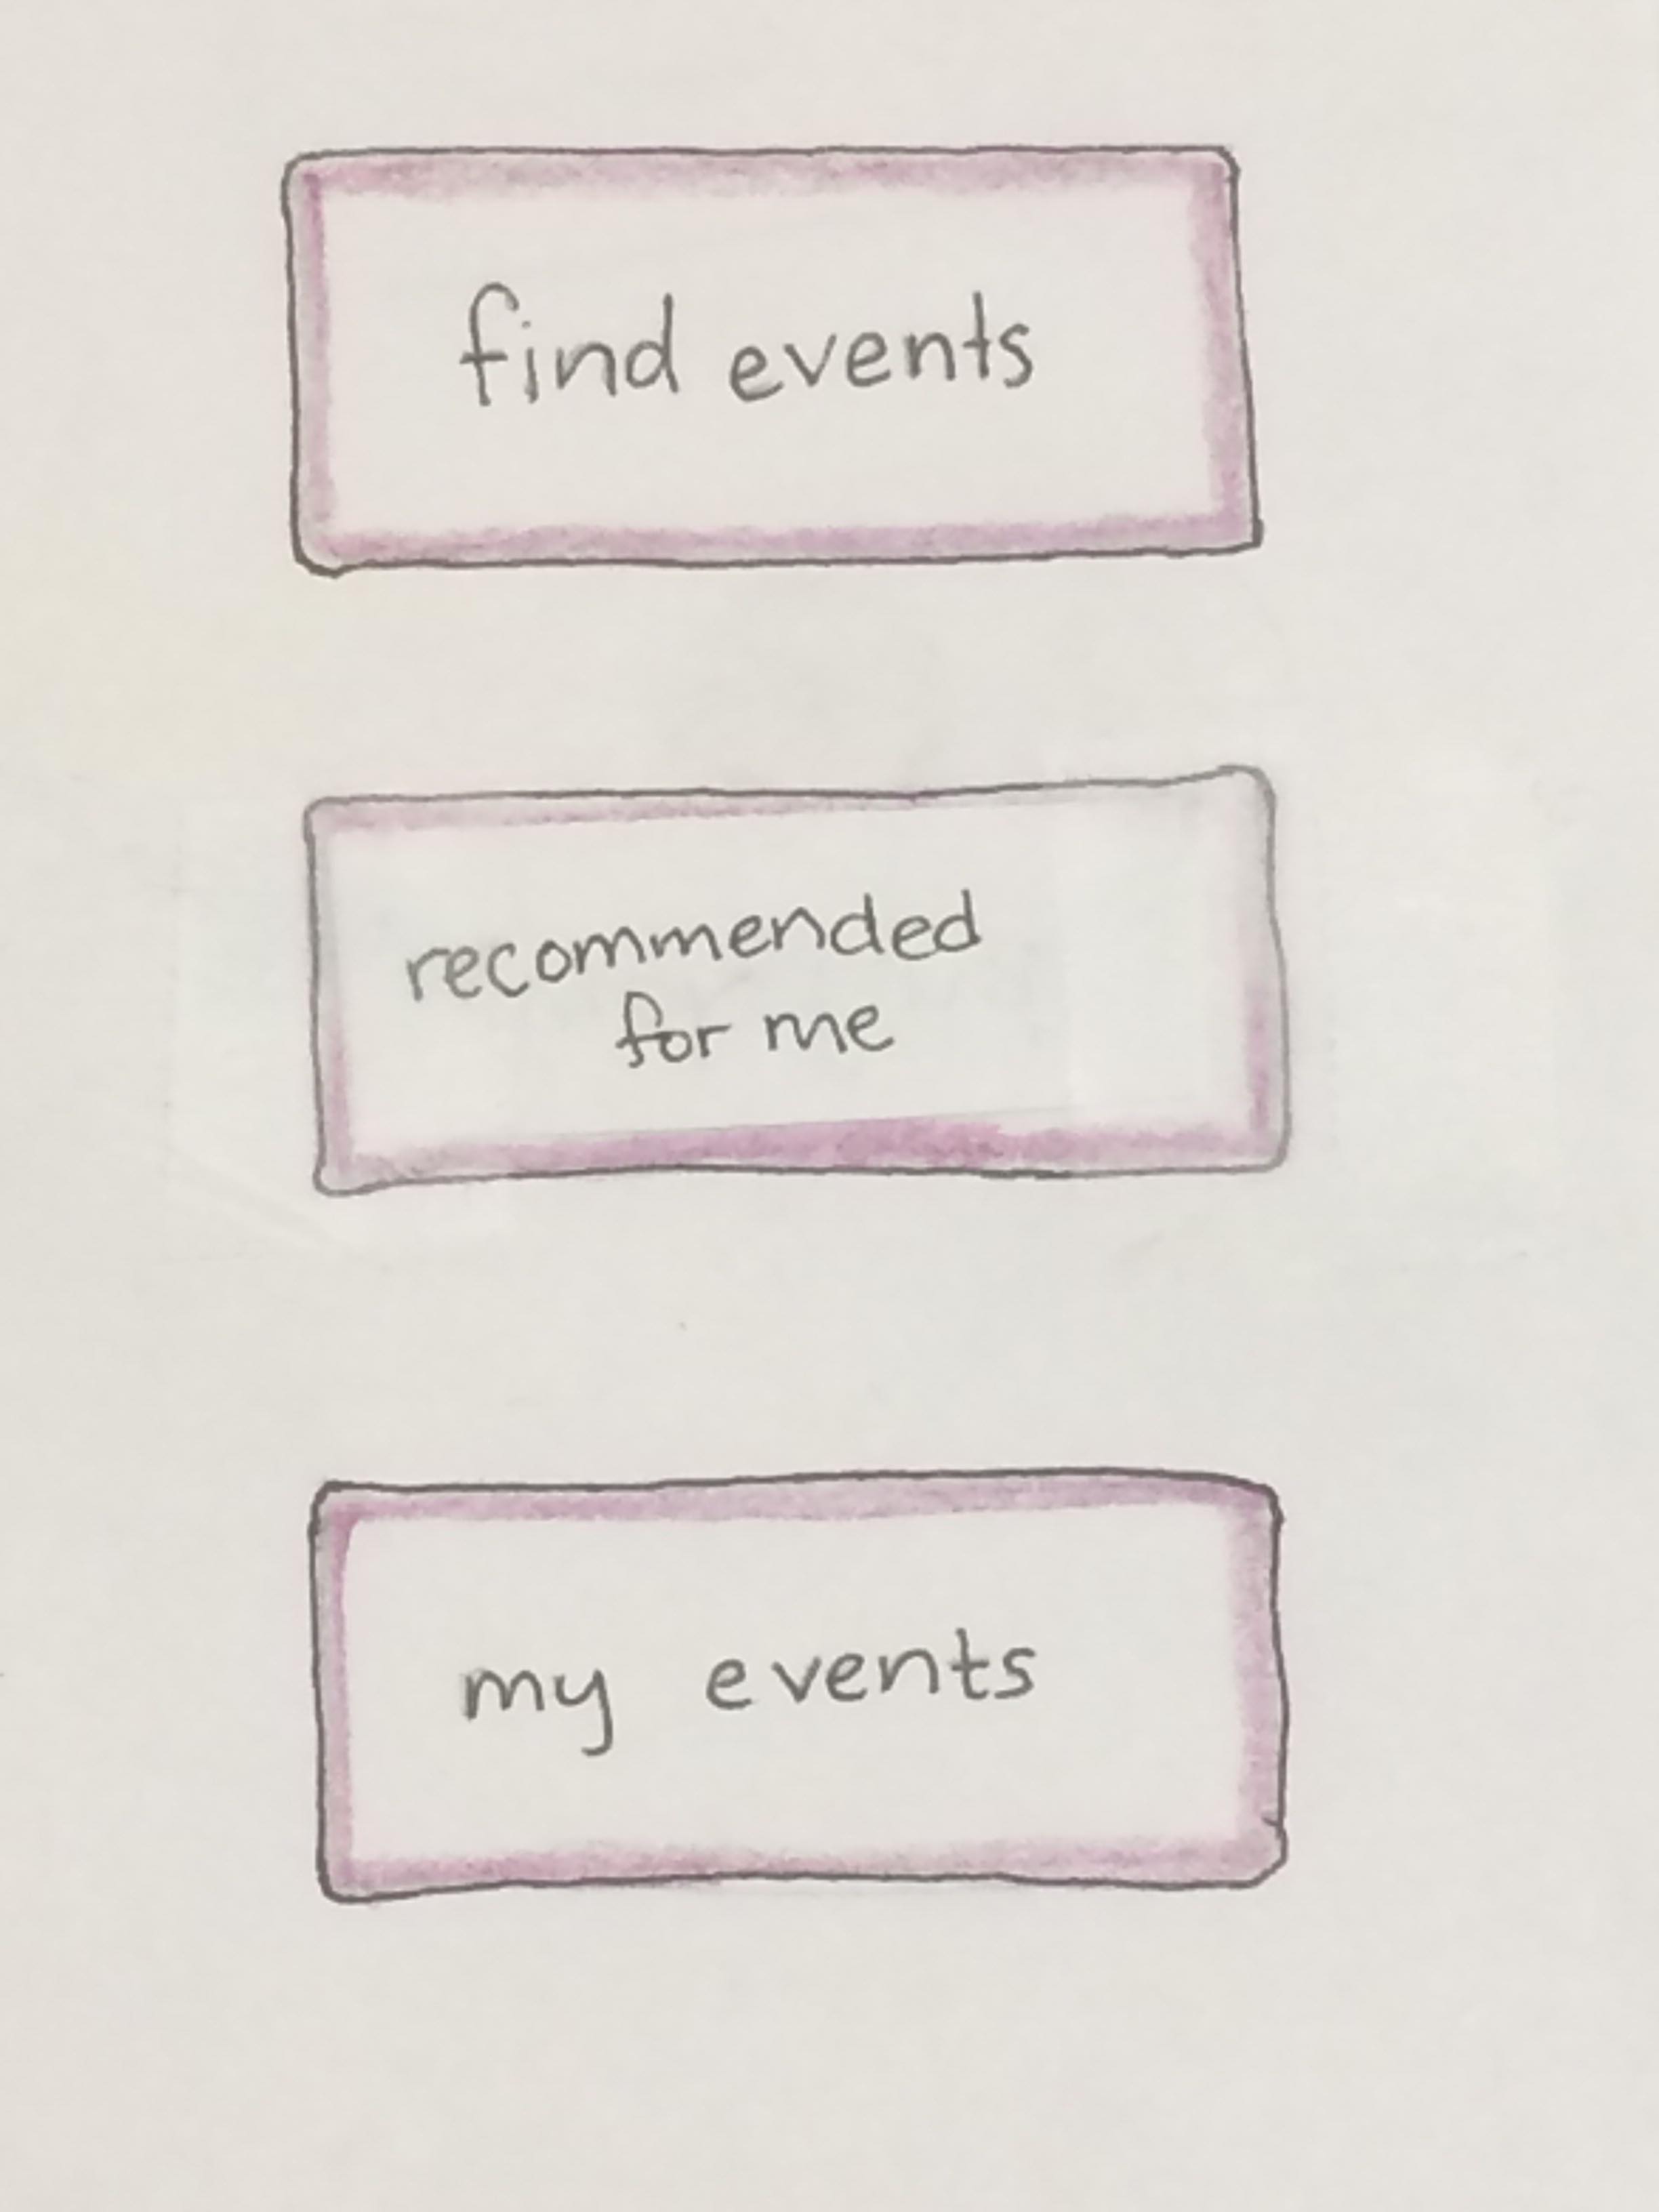 find events
recommended
for me
my events